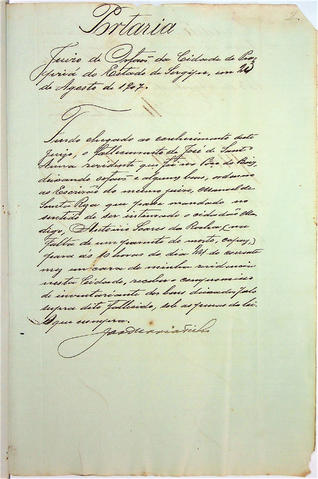 Portaria
Juizo de Orfãos da Cidade de Pro-
priá do Estado de Sergipe, em 23
de Agosto de 1907.
Tendo chegado ao conhecimento deste
Juizo, o fallecimento de José de Sant'
Anna residente que foi no
deixando orfãos e alguns bens, ordeno
ao Escrivão do mesmo juizo, Manoel de
que passe mandado no
sentido de ser intimado o cidadão
digo, Antonio Soares da Rocha (na
falta de um parente do morto, capaz)
para ás 10 horas do dia 24 do corrente
mez em casa de minha residencia
nesta Cidade, receber compromisso
de inventariante dos bens deixados pelo
supra dito fallecido, sob as penas da lei.
O que cumpra.